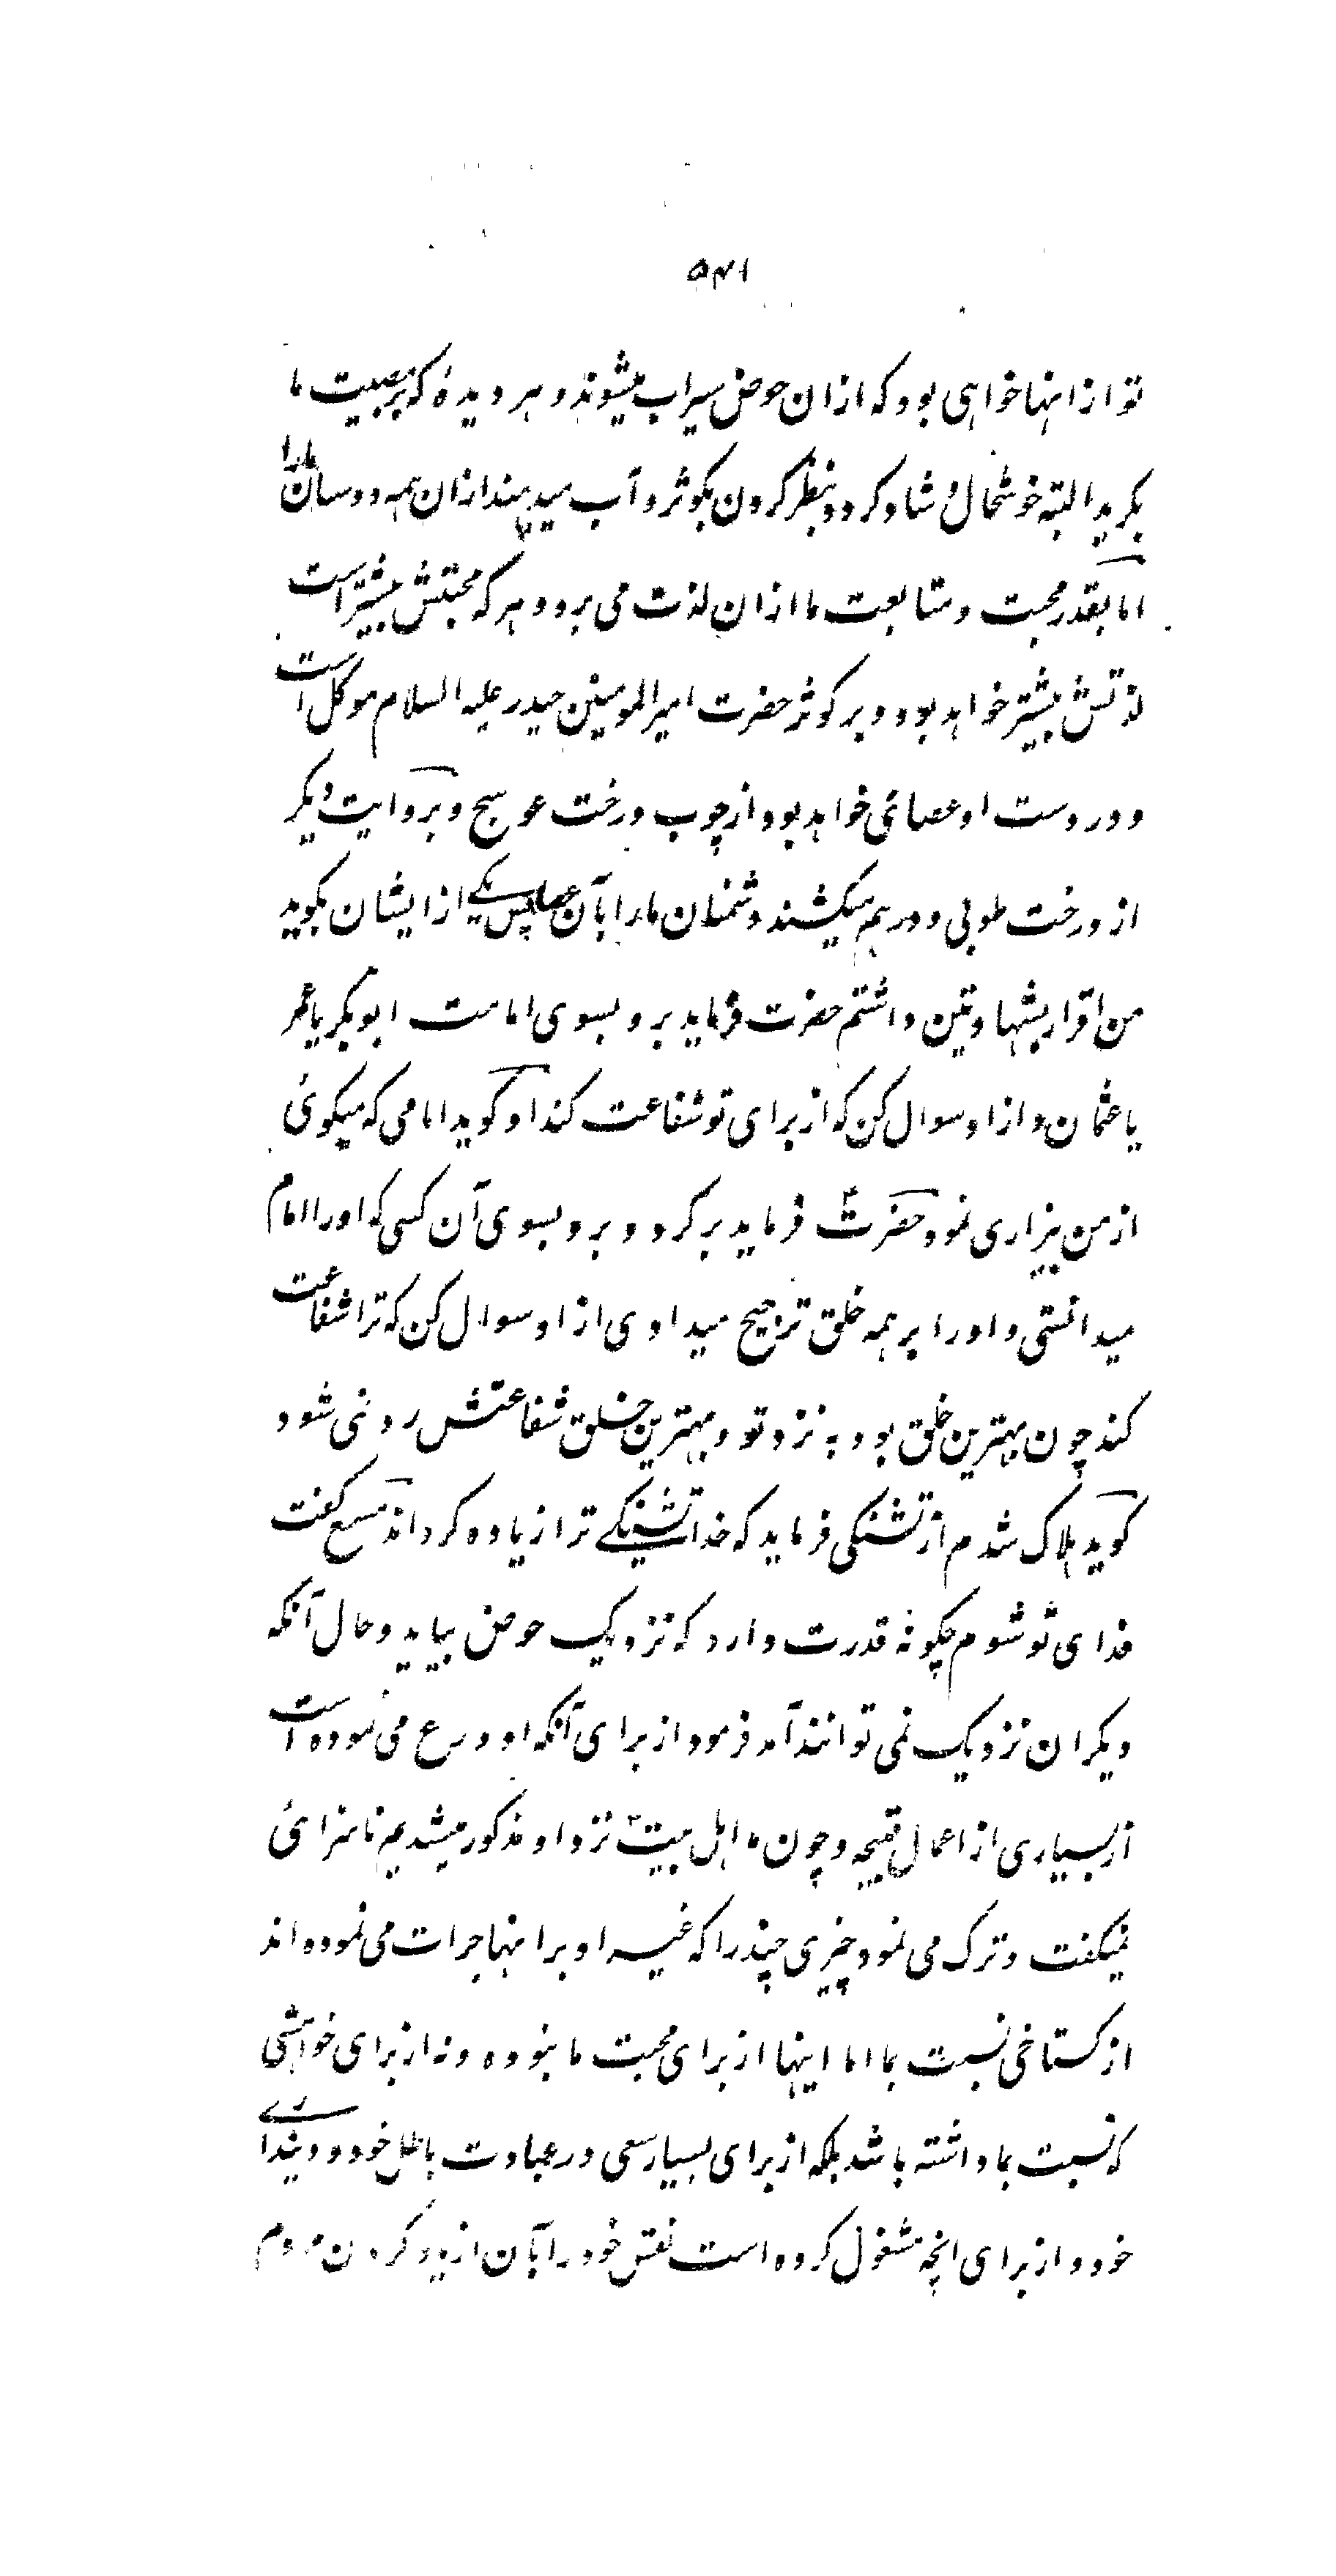 ۵۴۱
تو از انها خواهی بود که ازان حوض سیراب میشوند و هر دیدهٔ که بر مصیبت ما
بگرید البته خوشحال و شاد گردد و بنظر کردن بکوثر و آب میدهند ازان همه دوستان مارا
اما بقدر محبت و متابعت ما ازان لذت می برد و هر که محبتش بیشتر است
لذتش بیشتر خواهد بود و بر کوثر حضرت امیر المومنین حیدر علیه السلام موکل است
و در دست او عصائی خواهد بود از چوب درخت عوسج و بروایت دیگر
از درخت طوبی و درهم میکشند دشمنان مارا بآن عصا پس یکے از ایشان بگوید
من اقرار بشهادتین داشتم حضرت فرماید برو بسوی امامت ابو بکر یا عمر
یا عثمان و از او سوال کن که از برای تو شفاعت کند او گوید امامی که میگوئی
از من بیزاری نمود حضرت فرماید برگرد و برو بسوی آن کسی که اورا امام
میدانستی و اورا بر همه خلق ترجیح میدادی از او سوال کن که ترا شفاعت
کند چون بهترین خلق بود به نزد تو و بهترین خلق شفاعتش رد نمی شود
گوید هلاک شدم از تشنگی فرماید که خدا تشنگے ترا زیاده گرداند مسمع گفت
فدای تو شوم چگونه قدرت دارد که نزدیک حوض بیاید و حال آنکه
دیگران نزدیک نمی توانند آمد فرمود از برای آنکه او ورع می نموده است
از بسیاری از اعمال قبیحه و چون ما اهل بیت نزد او مذکور میشدیم ناسزائی
نمیگفت و ترک می نمود چیزی چند را که غیر او بر اینها جرات می نموده اند
از گستاخی نسبت بما اما اینها از برای محبت ما نبوده و نه از برای خواهشی
که نسبت بما داشته باشد بلکه از برای بسیار سعی در عبادت باطل خود و دینداری
خود و از برای انچه مشغول کرده است نفس خود را بآن از یاد کردن مردم